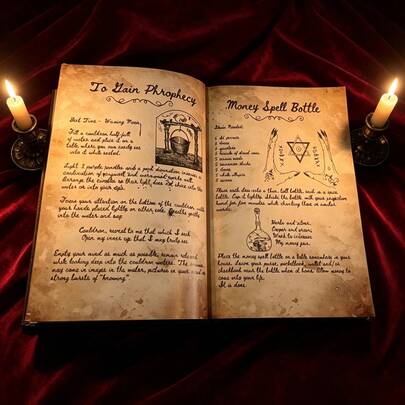 To Gain Phrophecy
Best Time - Waxing Moon
Fill a cauldron half full
of water and place it on a
table where you can easily see
into it while seated.
Light 2 purple candles and a
combination of
arrange the candles so that their light does not shine into the
water or into your eyes.
Focus your attention on the bottom of the cauldron,
your hands placed lightly on either side. Breathe gently
into the water and say
Cauldron, reveal to me that which I seek
Open my inner eye that I may truly see.
Empty your mind as much as possible, remain relaxed
while looking deep into the cauldron waters. The answer
may come in images in the water, pictures in your mind or
strong bursts of "knowing".
Money Spell Bottle
Items Needed:
5 cloves
5
5
5
5
5
5
Place each item into a thin, tall bottle, such as a spice
bottle. Cap it tightly. Shake the bottle with your projecting
hand for five minutes while chanting these or similar
words:
Herbs and silver,
Copper and grain;
Work to increase
My money gain.
Place the money spell bottle on a table somewhere in your
house. Leave your purse, pocketbook, wallet and/or
checkbook near the bottle when at home. Allow money to
come into your life.
It is done.